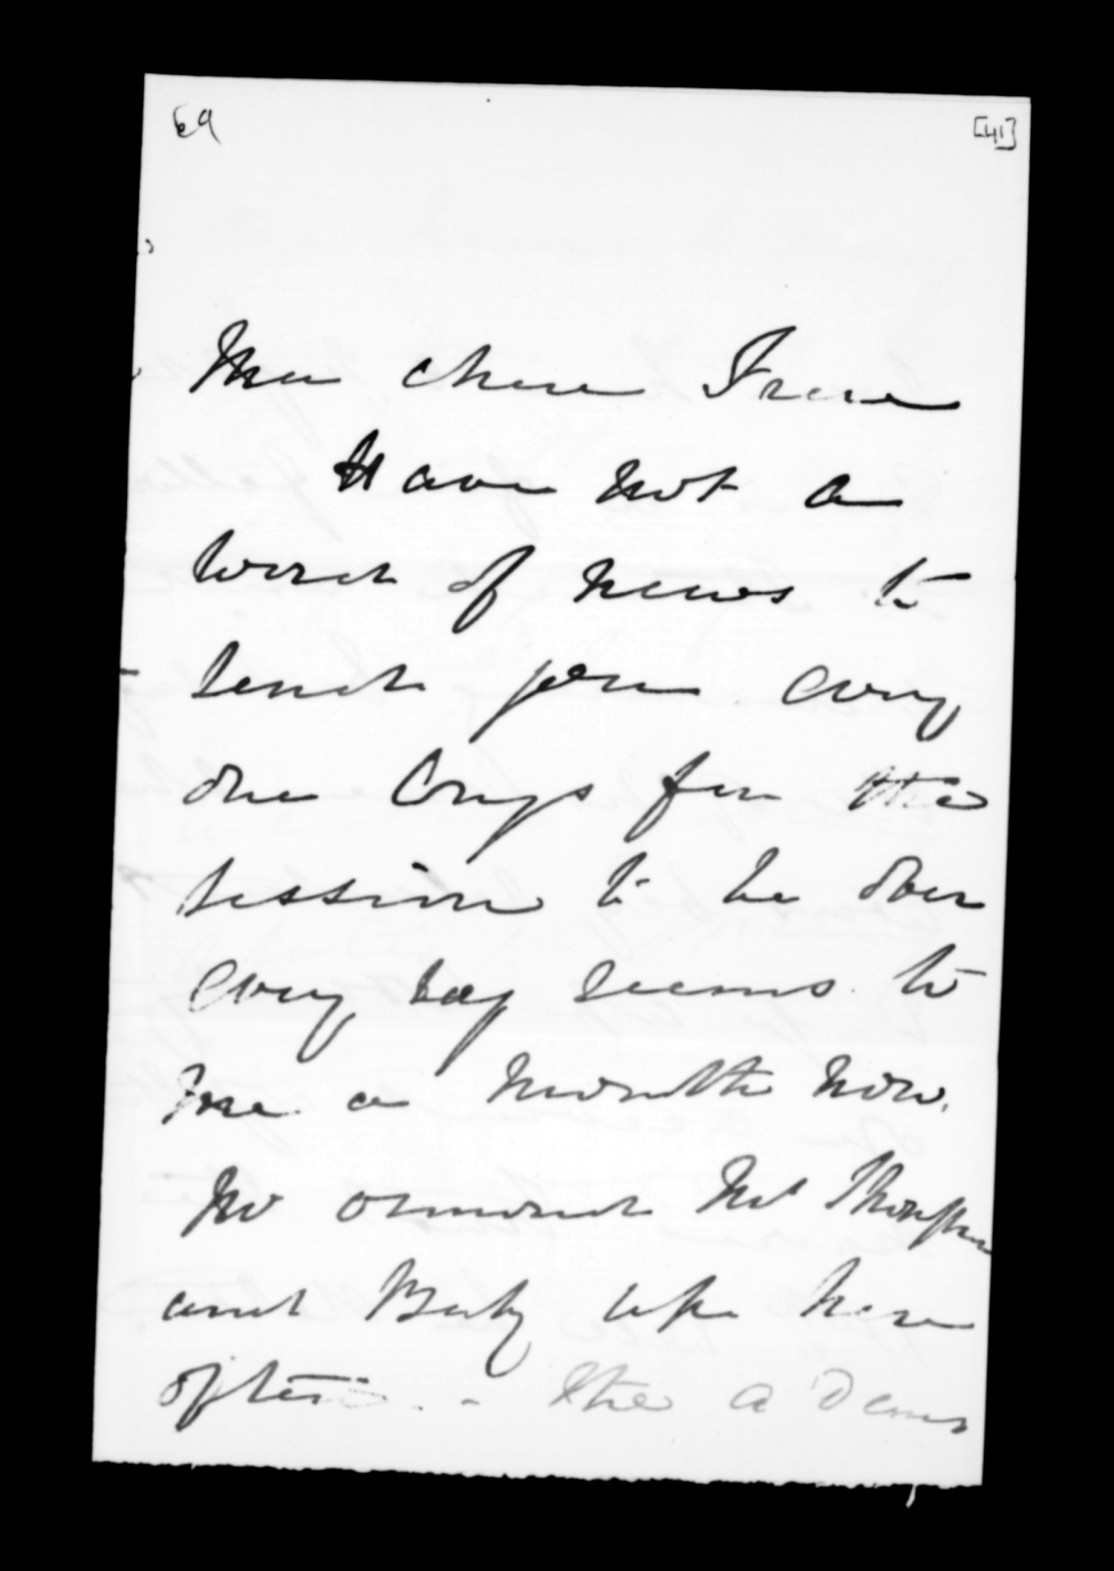 69
[41]
Ma chere Frere
Have not a
word of news to
send you every
one longs for the
session to be over
every day seems to
me a month now.
Mr Ormond Mrs Thompson
and Baby up here
often - The Adams